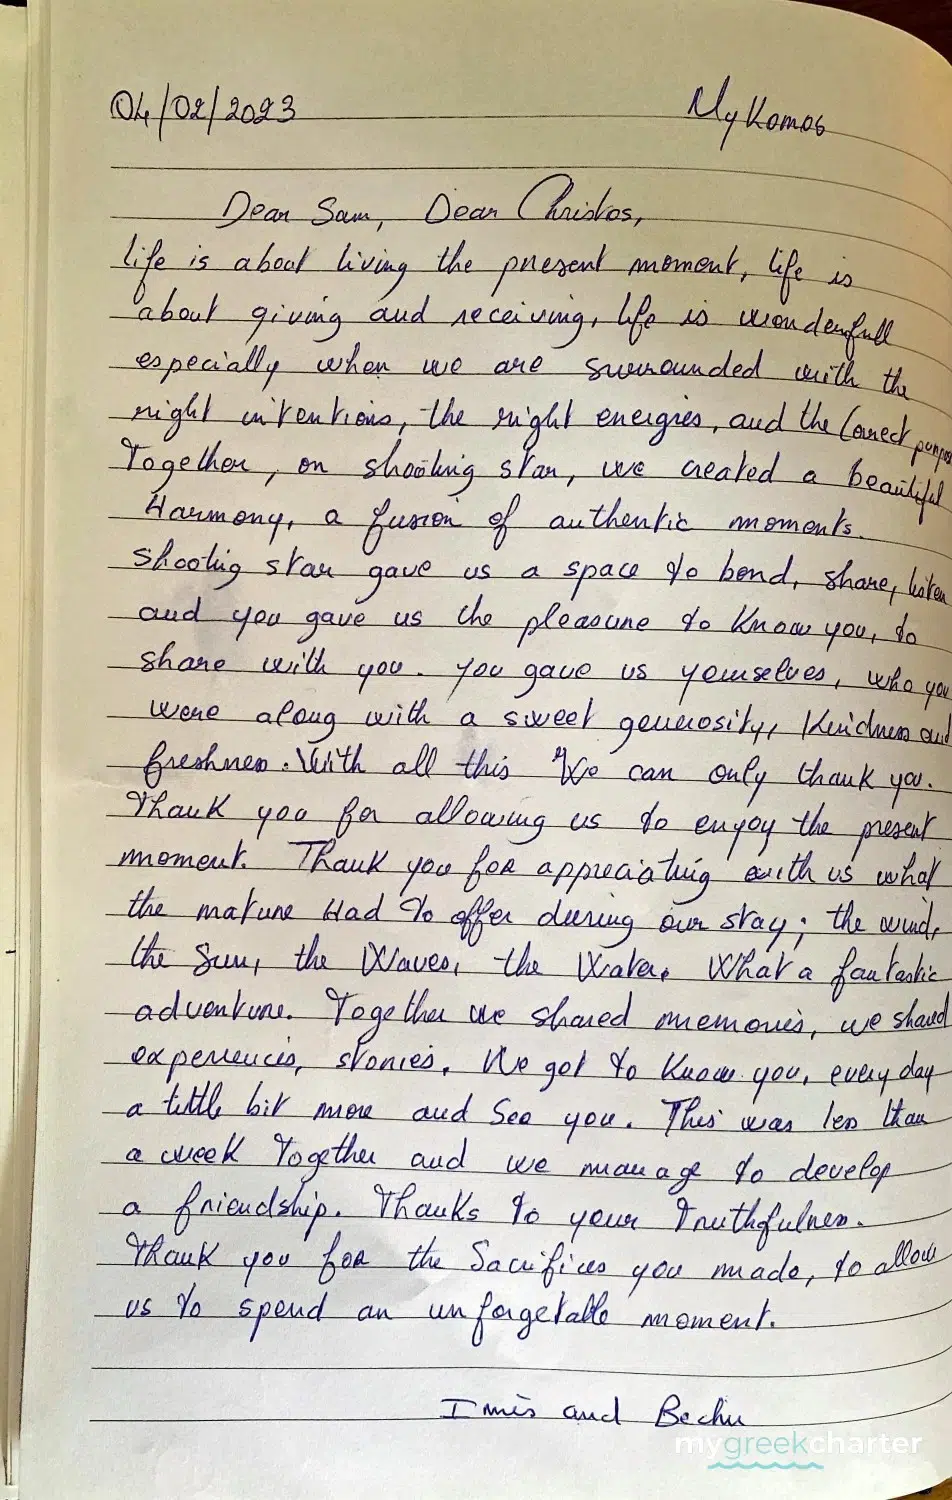 04/02/2023 Mykonos
Dear Sam, Dear Christos,
life is about living the present moment, life is
about giving and receiving, life is wonderfull
especially when we are surrounded with the
right intentions, the right energies, and the Correct purpose
Together, on shooting star, we created a beautiful
Harmony, a fusion of authentic moments.
shooting star gave us a space to bond, share, listen
and you gave us the pleasure to Know you, to
share with you. you gave us yourselves, who you
were along with a sweet generosity, Kindness and
freshness. With all this We can only thank you.
Thank you for allowing us to enjoy the present
moment. Thank you for appreciating with us what
the nature Had to offer during our stay; the wind,
the Sun, the Waves, the Water. What a fantastic
adventure. Together we shared memories, we shared
experiences, stories. We got to Know you, every day
a little bit more and See you. This was less than
a week Together and we manage to develop
a friendship. Thanks to your Truthfulness.
Thank you for the Sacrifices you made, to allow
us to spend an unforgetable moment.
and
mygreekcharter